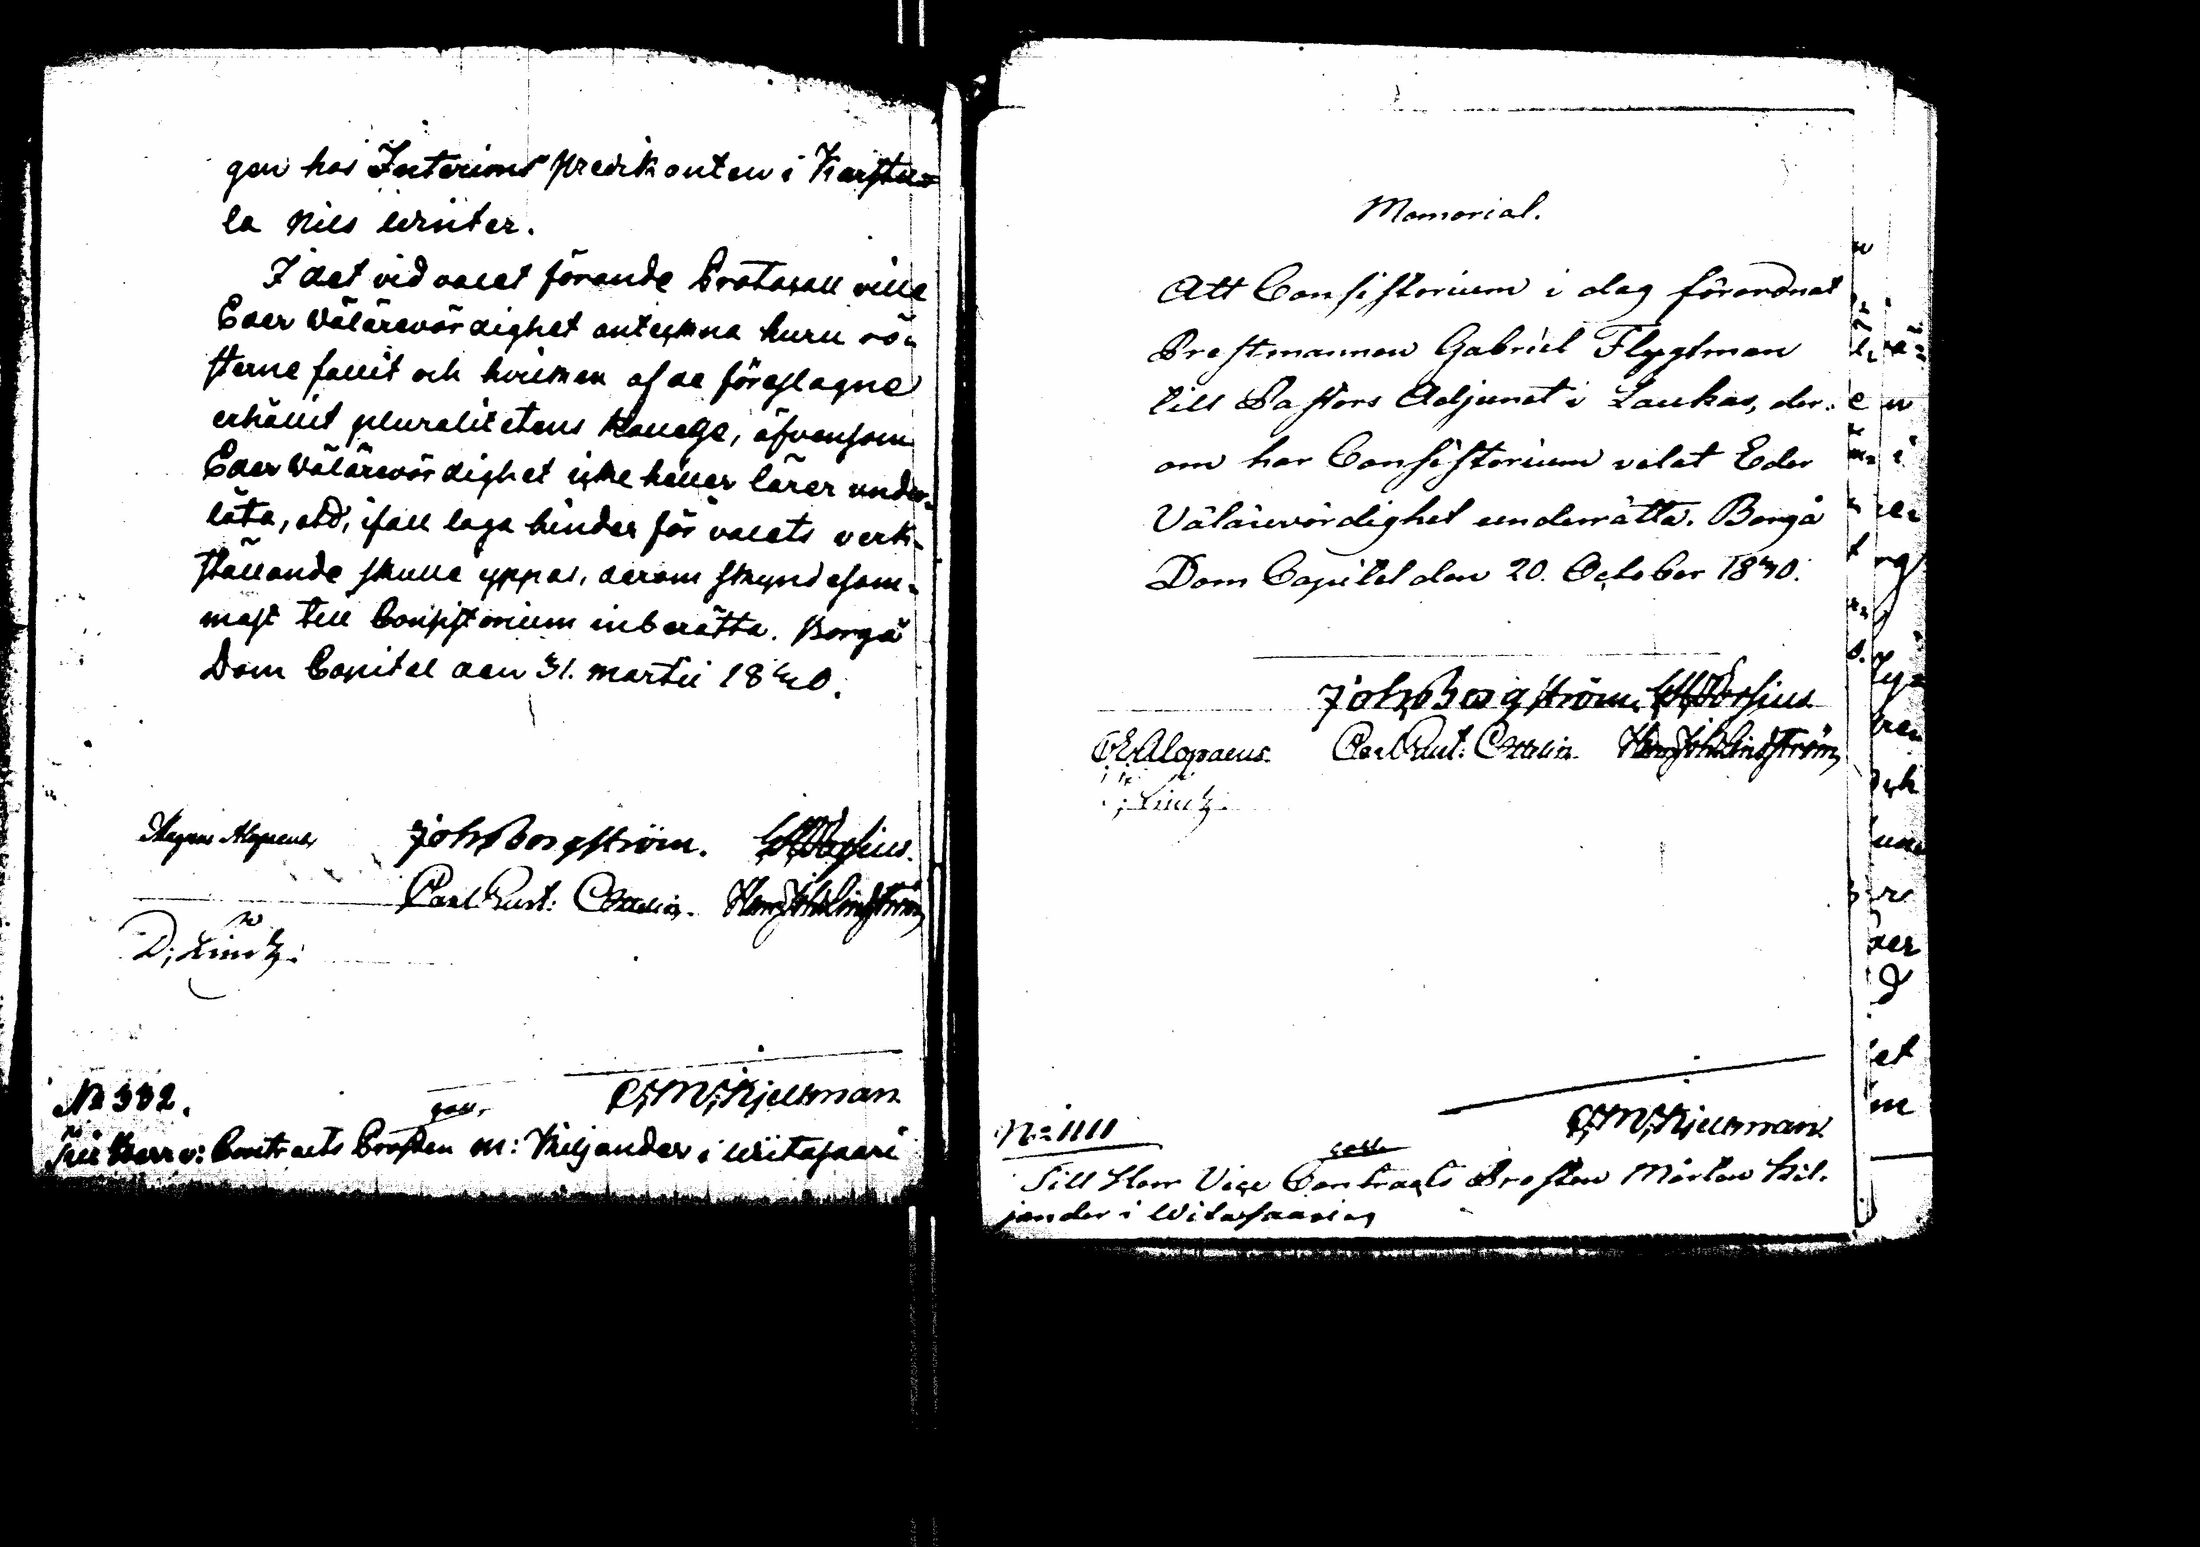 gen hos Interims predikanten i Karstu=
la Nils Winter.
I det vid valet förande Protocoll ville
Eder Välärevördighet anteckna huru rö=
sterne fallit och hvilken af de föreslagne
erhållit pluralitetens kallelse, äfvensom
Eder Välärevördighet icke heller lärer under=
låta, att, ifall laga hinder för valets verk=
ställande skulle yppas, derom skyndesam=
mast till Consistorium inberätta. Borgå
Dom Capitel den 31. Martii 1840.
Magnus Alopaeus Joh. Borgström.
Carl Gust. Ottelin. Henr. Joh. Lindström
C. M. Kjellman
№ 332.
Till Herr v: Contracts Prosten M: Kiljander i Wiitasaari
Memorial.
Att Consistorium i dag förordnat
Prestmannen Gabriel Flygtman
till Pastors Adjunct i Laukas, der=
om har Consistorium velat Eder
Välärevördighet underrätta. Borgå
Dom Capitel den 20. October 1840.
Joh. Borgström.
Alopaeus. Carl Gust. Ottelin. Henr. Joh. Lindström
C. M. Kjellman
№ 1111
Till Herr Vice Contracts Prosten Mårten Kil=
jander i Witasaari